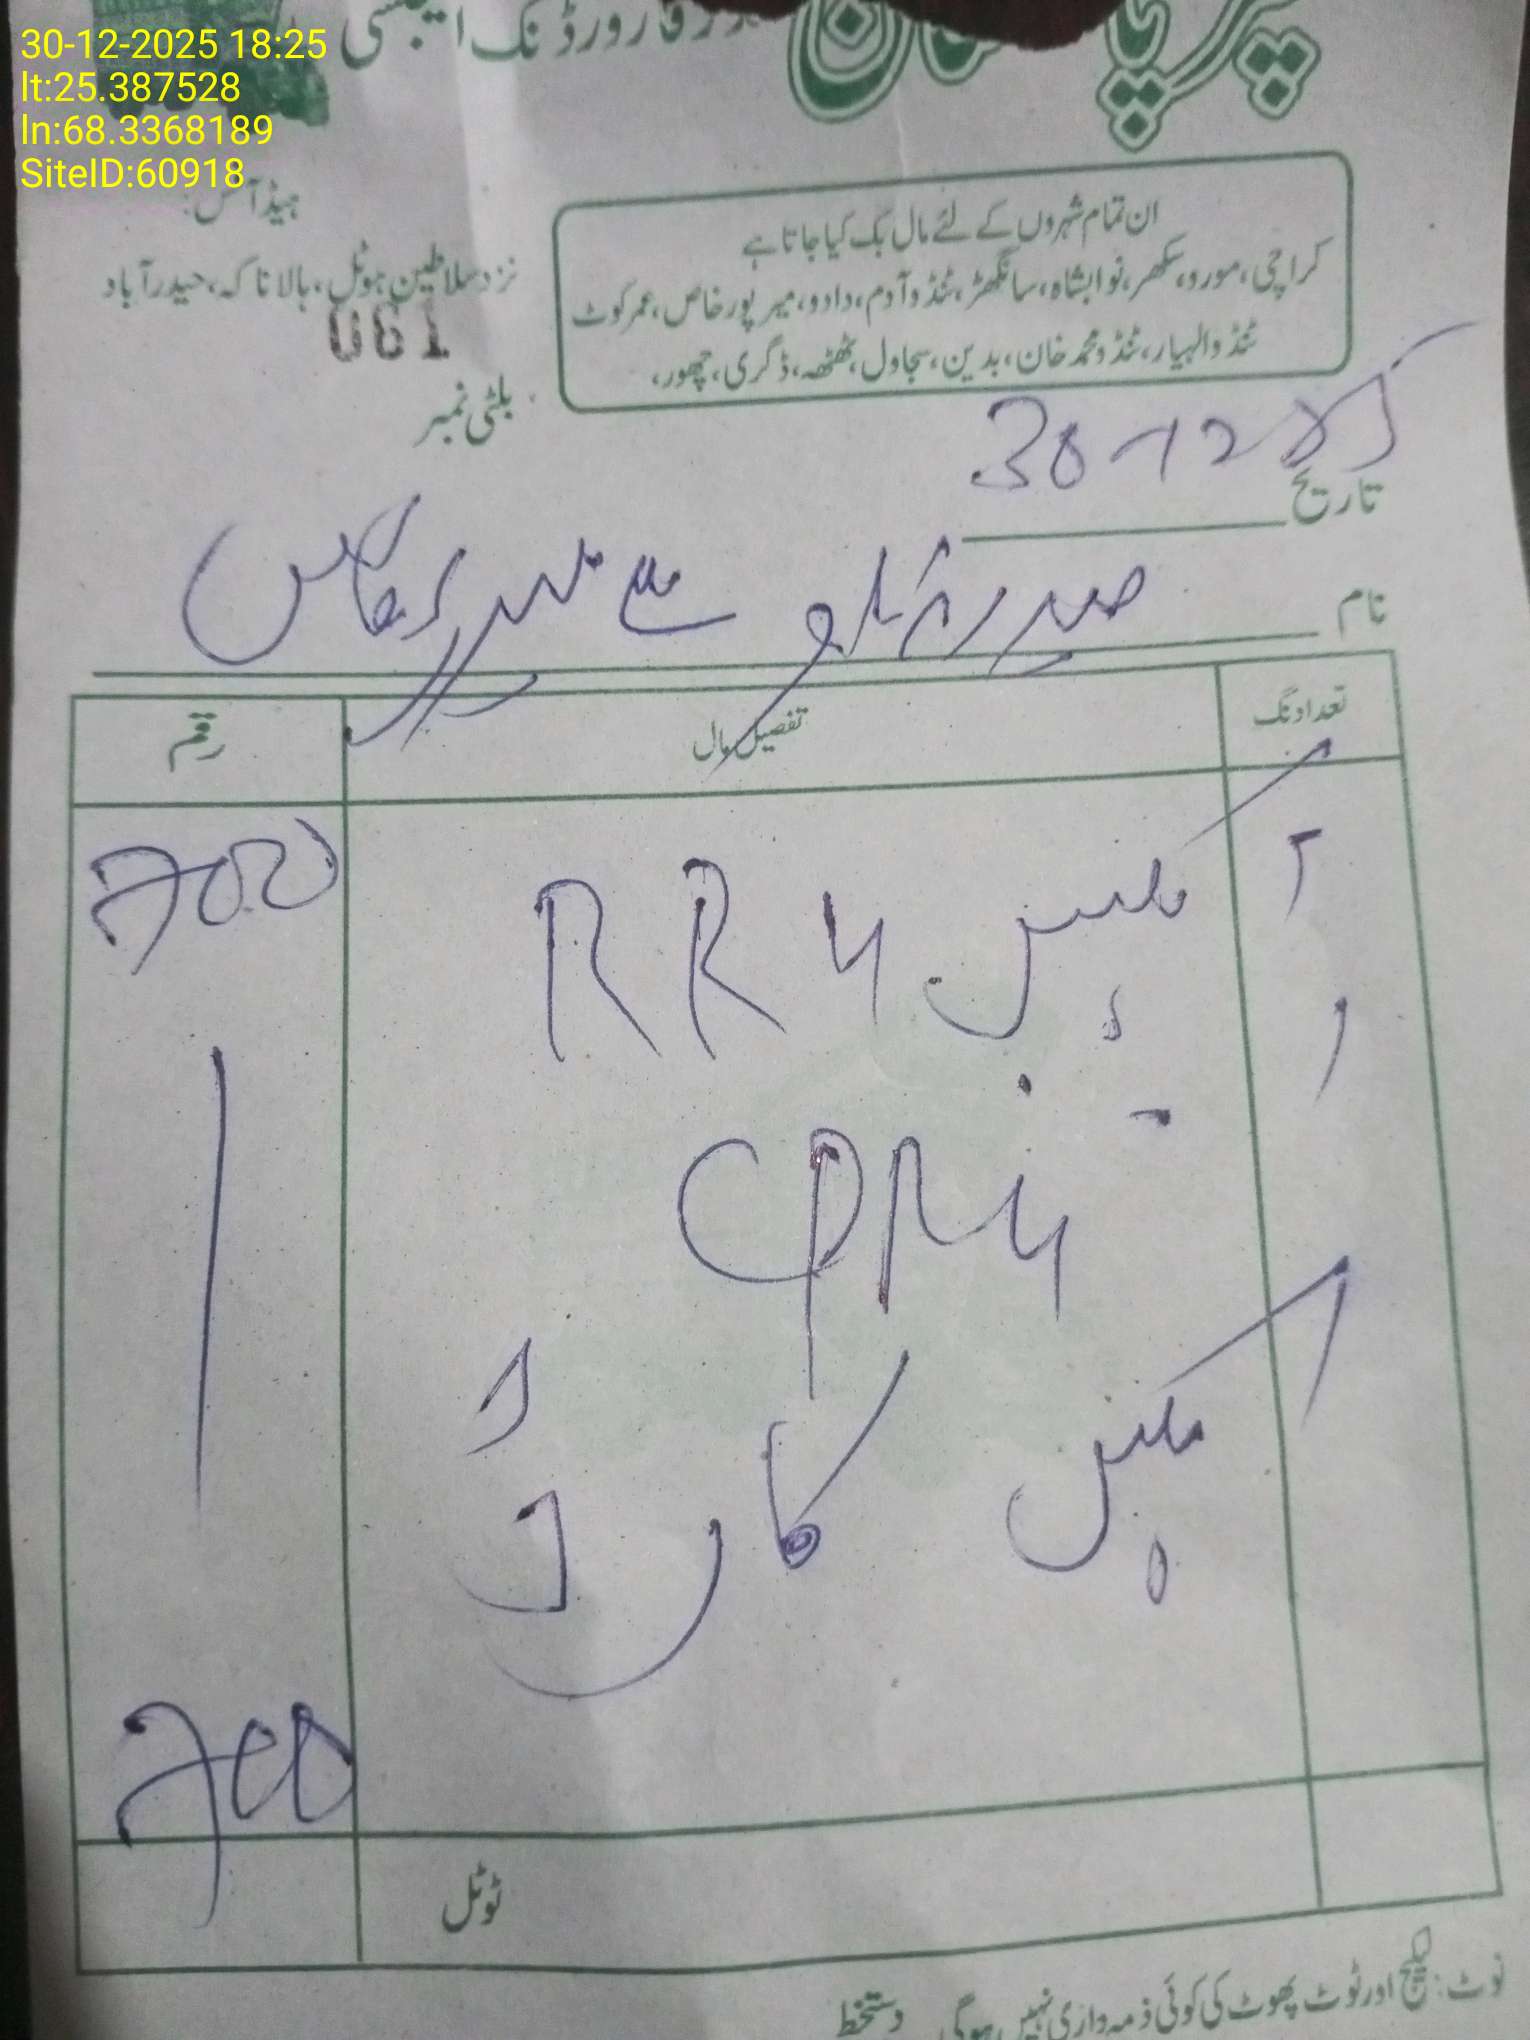 30-12-2025 18:25
lt:25.387528
ln:68.3368189
SiteID:60918
فارورڈنگ ایجنسی
ہیڈ آفس:
نزد سلاطین ہوٹل، بالا ناکہ، حیدرآباد
061
بلٹی نمبر
ان تمام شہروں کے لئے مال بک کیا جاتا ہے
کراچی، مورو، سکھر، نوابشاہ، سانگھڑ، ٹنڈوآدم، دادو، میرپورخاص، عمرکوٹ
ٹنڈوالہیار، ٹنڈومحمدخان، بدین، سجاول، ٹھٹھہ، ڈگری، چھور،
تاریخ 30-12-25
نام سے میرپورخاص
تعداد نگ تفصیل مال رقم
2 RR4 700
1 CPR4
1 کارڈ
700
ٹوٹل
نوٹ: لیکج اور ٹوٹ پھوٹ کی کوئی ذمہ داری نہیں ہوگی دستخط